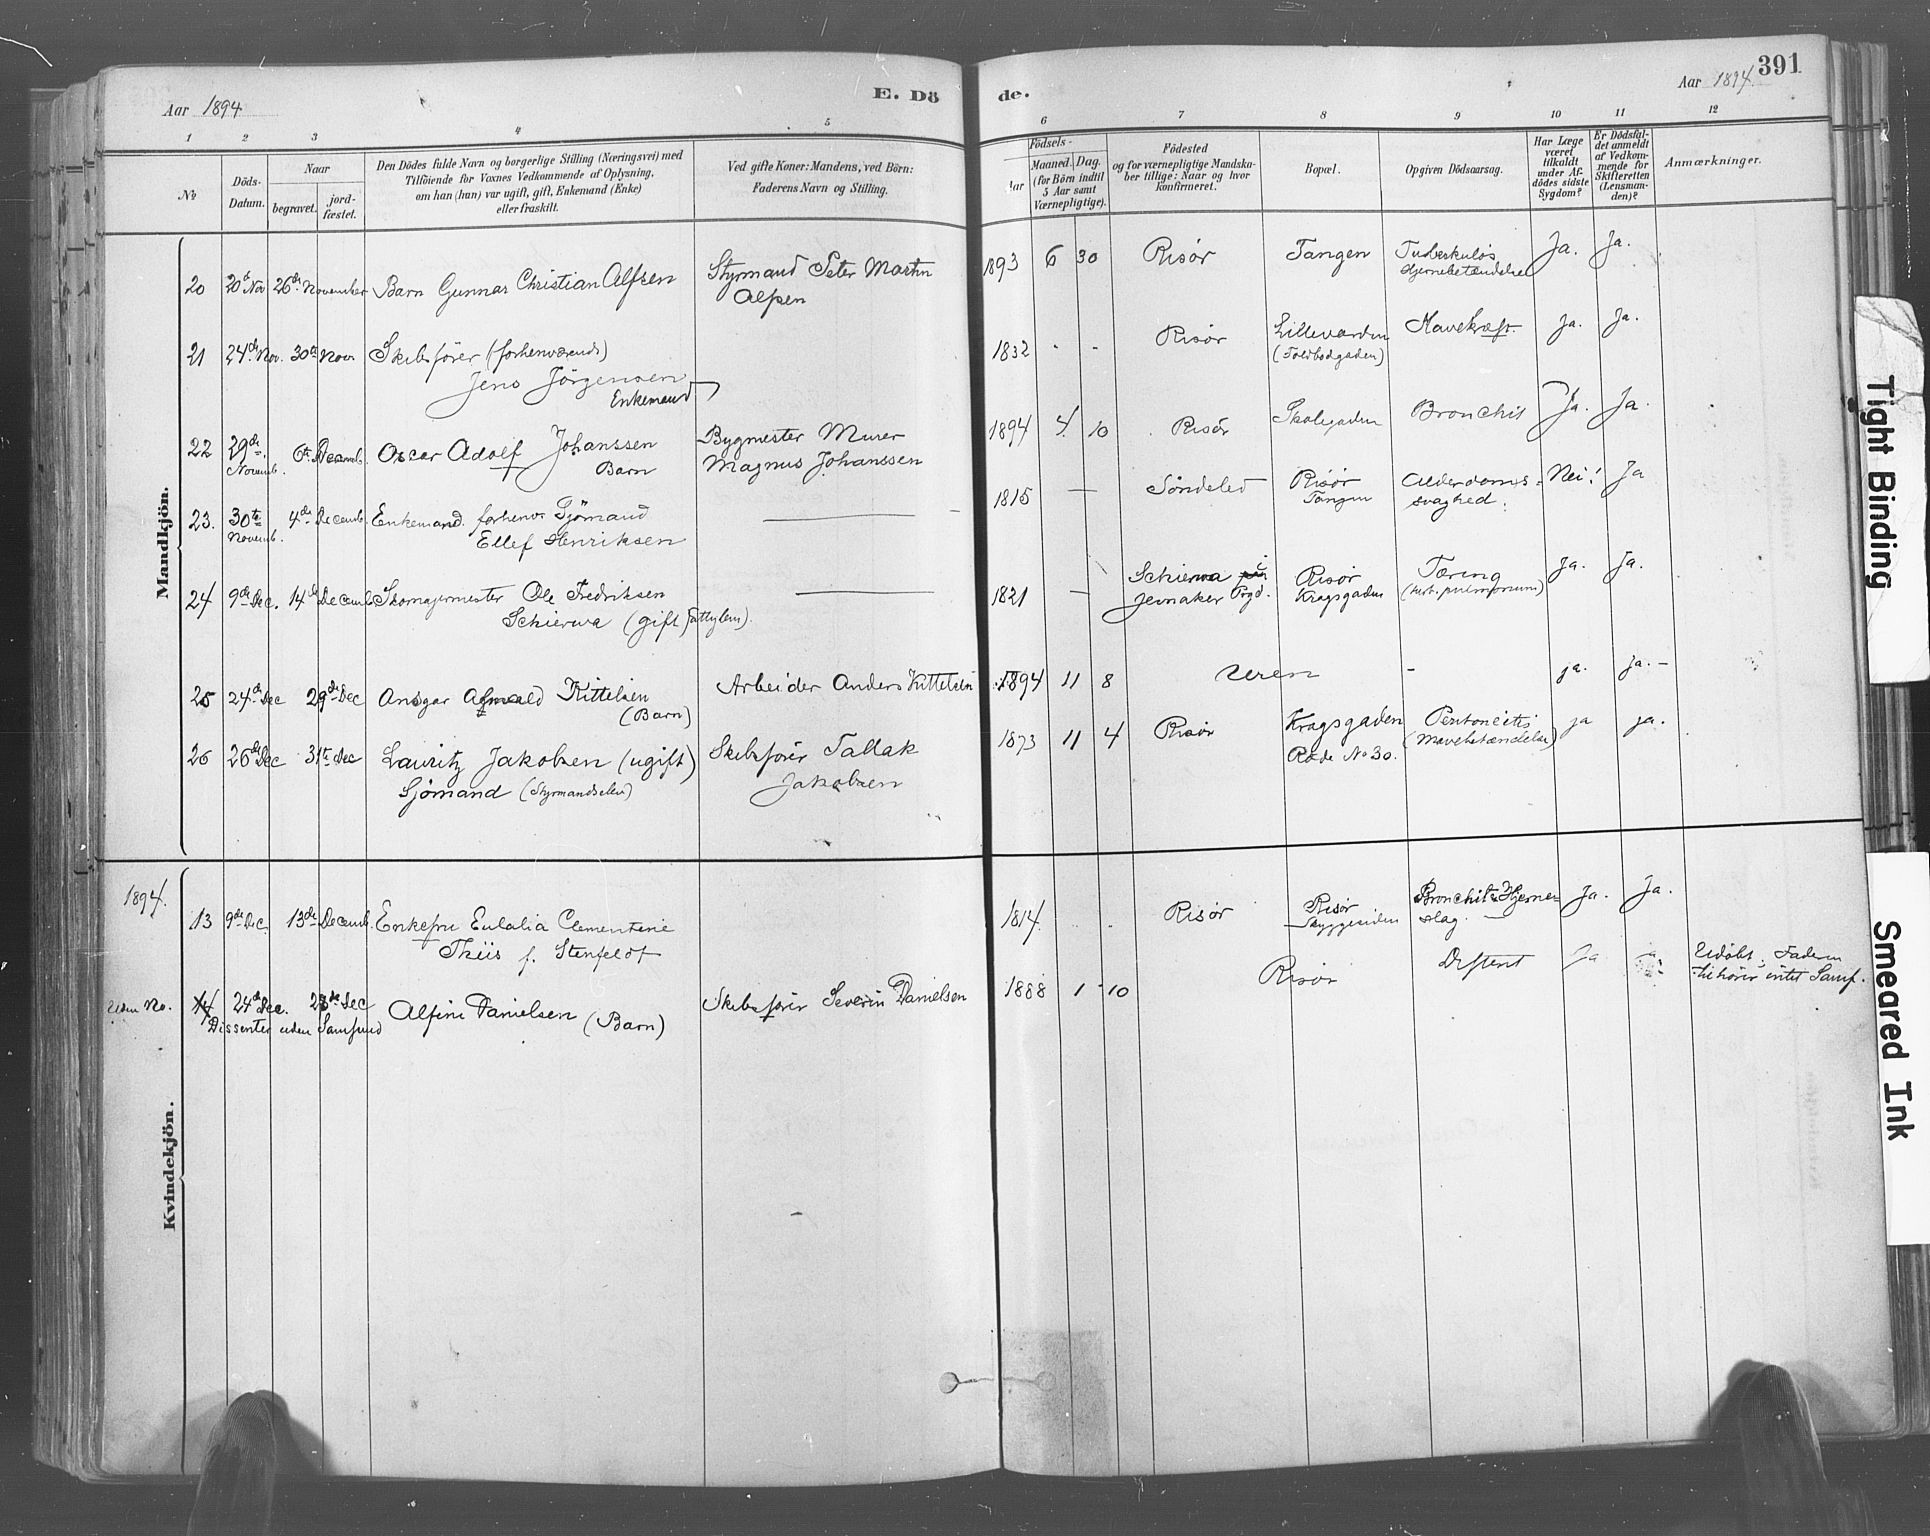 Aar 1894
E. Dö
de.
Aar 1894.
391
1 2 3 4 5
6 7 8 9 10 11 12
№
Döds-
Datum.
Naar
begravet.
jord-
fæstet.
Den Dödes fulde Navn og borgerlige Stilling (Næringsvei) med
Tilföiende for Voxnes Vedkommende af Oplysning,
om han (hun) var ugift, gift, Enkemand (Enke)
eller fraskilt.
Ved gifte Koner: Mandens, ved Börn:
Faderens Navn og Stilling.
Födsels-
Aar
Maaned. Dag.
(for Börn indtil
5 Aar samt
Værnepligtige).
Födested
og for værnepligtige Mandska-
ber tillige: Naar og hvor
konfirmeret.
Bopæl.
Opgiven Dödsaarsag.
Har Læge
været
tilkaldt
under Af-
dödes sidste
Sygdom?
Er Dödsfal-
det anmeldt
af Vedkom-
mende for
Skifteretten
(Lensman-
den)?
Anmærkninger.
Mandkjön.
20 20de Nov 26de November Barn Gunnar Christian Alfsen Styrmand Peter Martin
Alfsen
1893 6 30 Risör Tangen Tuberkuløs
Hjernebetændelse
Ja. Ja.
21 24de Nov. 30te Nov. Skibsfører (forhenværende)
Jens Jörgensen
Enkemand
1832 - - Risør Lillevarden
(Toldbodgaden)
Mavekræft. Ja. Ja.
22 29de
Novemb.
6te Decemb. Oscar Adolf Johanssen
Barn
Bygmester Murer
Magnus Johanssen
1894 4 10 Risör Skolegaden Bronchit Ja. Ja.
23. 30te
Novemb.
4de Decemb. Enkemand. forhenv. Sjömand
Ellef Henriksen
1815 — Söndeled Risör
Tangen
Alderdoms-
svaghed.
Nei! Ja
24 9de Dec. 14de Decemb. Skomagermester Ole Fredriksen
Schierva (gift Fattylem).
1821 — Schierva i
Jevnaker Prgd.
Risör
Kragsgaden
Tæring
(tub. pulmonum)
Ja. Ja.
25 24de Dec 29de Dec Ansgar Kittelsen
(Barn)
Arbeider Anders Kittelsen
1894 11 8 Uren - ja. ja. -
26 26de Dec 31te Dec Lauritz Jakobsen (ugift)
Sjømand (Styrmandselev)
Skibsfører Tallak
Jakobsen
1873 11 4 Risør Kragsgaden
Rode No 30.
Peritoneitis
(Mavebetændelse)
ja ja.
1894.
13 9de Dec. 13de Decemb. Enkefru Eulalia Clementine
Thiis f. Stenfeldt
1814. Risör Risör
Skyggesiden
Bronchit & Hjerne-
slag.
Ja. Ja.
Uden No. 14 24de Dec. 28de Dec
Dissenter uden Samfund
Alfine Danielsen (Barn)
Skibsfører Severin Danielsen
1888 1 10 Risør Difterit Ja
Udøbt; Faderen
tilhører intet Samf.
Kvindekjön.
Tight Binding
Smeared Ink